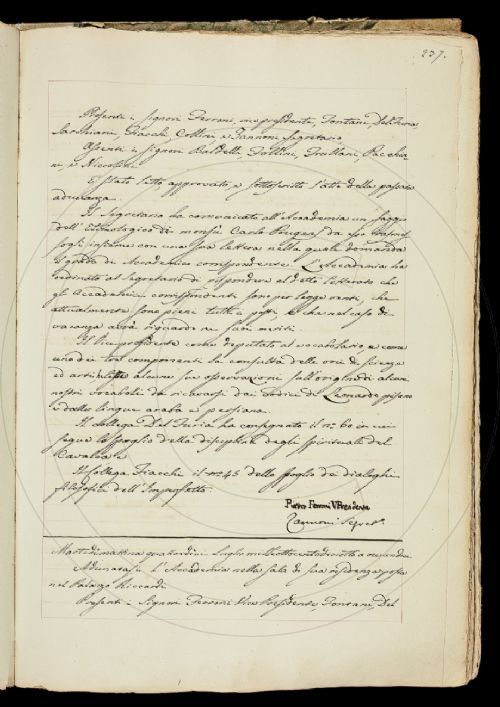 237.
Presenti i Signori Ferroni, vicepresidente, Fontani, Del Furia
Sarchiani, Fiacchi, Collini e Zannoni Segretario
Assenti i Signori Baldelli, Follini, Frullani, Pacchia
ni, e Niccolini.
È stato letto approvato, e sottoscritto l'atto della passata
adunanza.
Il Segretario ha comunicato all'Accademia un saggio
dell'Etimologico di monsù Carlo Pougens da esso trasmes
sogli insieme con una sua lettera nella quale domanda
il grado di Accademico corrispondente. L'Accademia ha
ordinato al Segretario di rispondere al detto letterato che
gli Accademici corrispondenti son per legge venti, che
attualmente sono pieni tutti i posti, e che nel caso di
vacanza avrà riguardo ai suoi meriti.
Il Vicepresidente come deputato al vocabolario e come
uno dei tre componenti la consulta delle voci di scienze
ed arti ha letto alcune sue osservazioni sull'origine di alcuni
nostri vocaboli da ricavarsi dai codici di Leonardo pisano
e dalle lingue araba e persiana.
Il collega Del Furia ha consegnato il n.° 60 in cui
segue lo spoglio della disciplina degli Spirituali del
Cavalca e
Il collega Fiacchi il n.° 45 dello spoglio de' dialoghi
filosofici dell'Imperfetto.
Pietro Ferroni V. Presidente
Zannoni Segret.
Martedì mattina quattordici Luglio mille ottocentodiciotto a ore undici
Adunatasi l'Accademia nella Sala di sua residenza posta
nel Palazzo Riccardi
Presenti i Signori Ferroni Vice Presidente, Fontani, Del